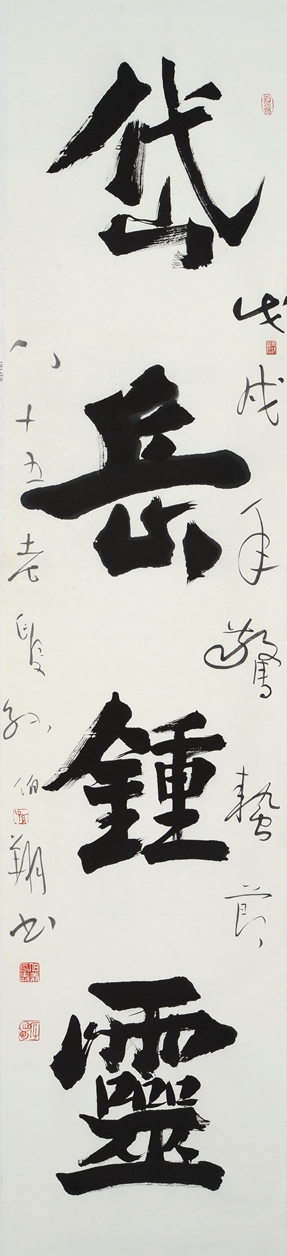 戊戌年驚蟄節
岱岳鍾靈
八十五老叟孫伯翔書